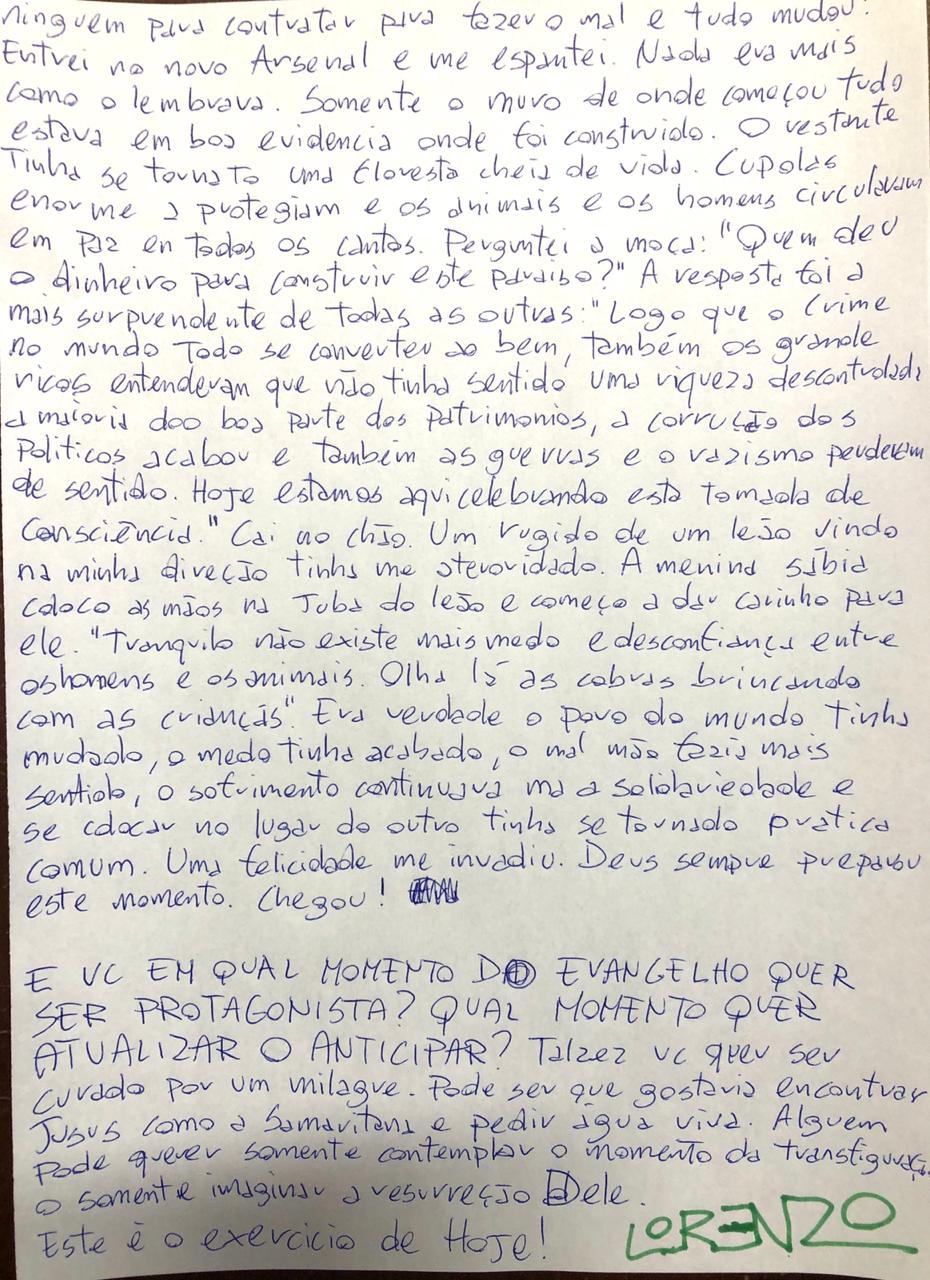 ninguem para contratar para fazer o mal e tudo mudou.
Entrei no novo Arsenal e me espantei. Nada era mais
como o lembrava. Somente o muro de onde começou tudo
estava em boa evidencia onde foi construido. O restante
Tinha se tornato uma floresta cheia de vida. Cupolas
enorme a protegiam e os animais e os homens circulavam
em paz en todos os cantos. Perguntei a moça: "Quem deu
o dinheiro para construir este paraiso?" A resposta foi a
mais surprendente de todas as outras: "Logo que o Crime
no mundo Todo se converteu ao bem, também os grande
ricos entenderam que não tinha sentido uma riqueza descontrolada
a maioria doo boa parte dos Patrimonios, a corrução dos
Politicos acabou e também as guerras e o razismo perderam
de sentido. Hoje estamos aqui celebrando esta tomada de
Consciência." Cai no chão. Um rugido de um leão vindo
na minha direção tinha me ateroridado. A menina sábia
coloco as mãos na Juba do leão e começo a dar carinho para
ele. "Tranquilo não existe mais medo e desconfiança entre
os homens e os animais. Olha lá as cobras brincando
com as crianças". Era verdade o povo do mundo tinha
mudado, o medo tinha acabado, o mal mão fazia mais
sentido, o sofrimento continuava ma a solidariedade e
se colocar no lugar do outro tinha se tornado pratica
comum. Uma felicidade me invadiu. Deus sempre preparou
este momento. Chegou!
E VC EM QUAL MOMENTO DO EVANGELHO QUER
SER PROTAGONISTA? QUAL MOMENTO QUER
ATUALIZAR O ANTICIPAR? Talzez vc quer ser
curado por um milagre. Pode ser que gostaria encontrar
Jusus como a Samaritana e pedir água viva. Alguem
Pode querer somente contemplar o momento da transfiguração
o somente imaginar a resurreção Dele.
Este é o exercicio de Hoje! LORENZO